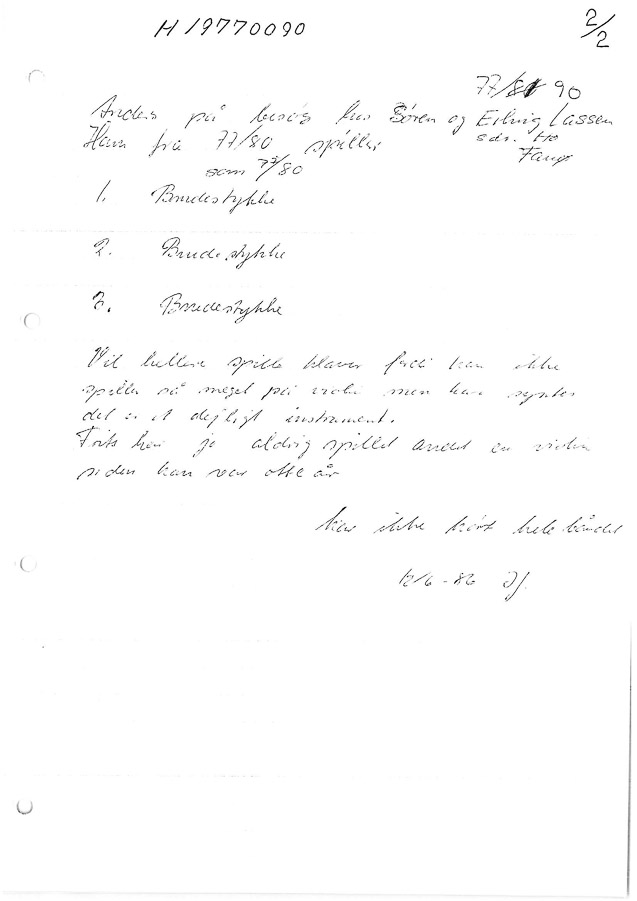 H 19770090
2/2
77/81 90
Anders på besøg hos Søren og Erling Lassen
sdr. Ho
Fanø
Ham fra 77/80 spiller
som 77/80
1. Brudestykke
2. Brudestykke
3. Brudestykke
Vil hellere spille klaver fordi han ikke
spiller så meget på violin men han syntes
det er et dejligt instrument.
Frits har jo aldrig spillet andet en violin
siden han var otte år
har ikke kørt hele båndet
12/6-86